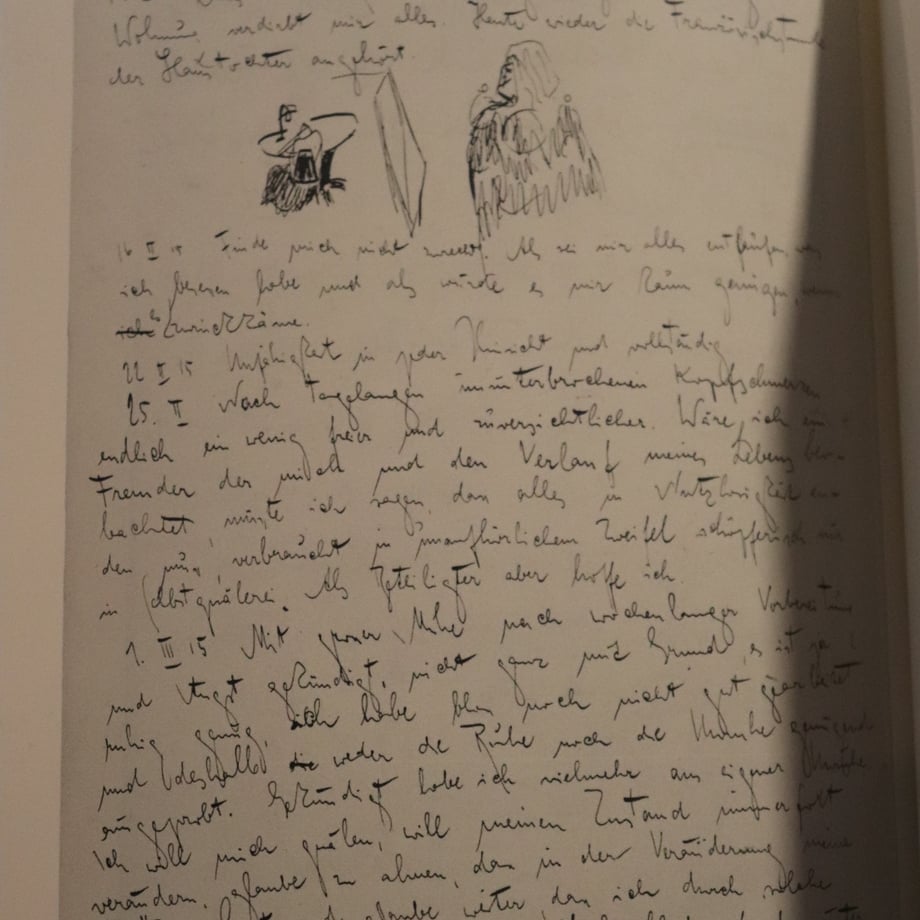 Wohnung verdirbt mir alles. Heute wieder die Französischstunde
der Haustochter angehört.
16 II 15 Finde mich nicht zurecht. Als sei mir alles entlaufen was
ich besessen habe und als würde es mir kaum genügen, wenn
ich es zurückkäme.
22 II 15 Unfähigkeit in jeder Hinsicht und vollständig
25. II Nach tagelangen ununterbrochenen Kopfschmerzen
endlich ein wenig freier und zuversichtlicher. Wäre ich ein
Fremder der mich und den Verlauf meines Lebens beo-
bachtet, müsste ich sagen, dass alles in Nutzlosigkeit en-
den muss, verbraucht in unaufhörlichem Zweifel schöpferisch nur
in Selbstquälerei. Als Beteiligter aber hoffe ich.
1. III 15 Mit grosser Mühe nach wochenlanger Vorbereitung
und Angst gekündigt, nicht ganz mit Grund, es ist ja
ruhig genug, ich habe bloss noch nicht gut gearbeitet
und deshalb die weder die Ruhe noch die Unruhe genügend
ausgeprobt. Gekündigt habe ich vielmehr aus eigener Unruhe
Ich will mich quälen, will meinen Zustand immerfort
verändern, glaube zu ahnen, dass in der Veränderung meine
glaube weiter dass ich durch solche